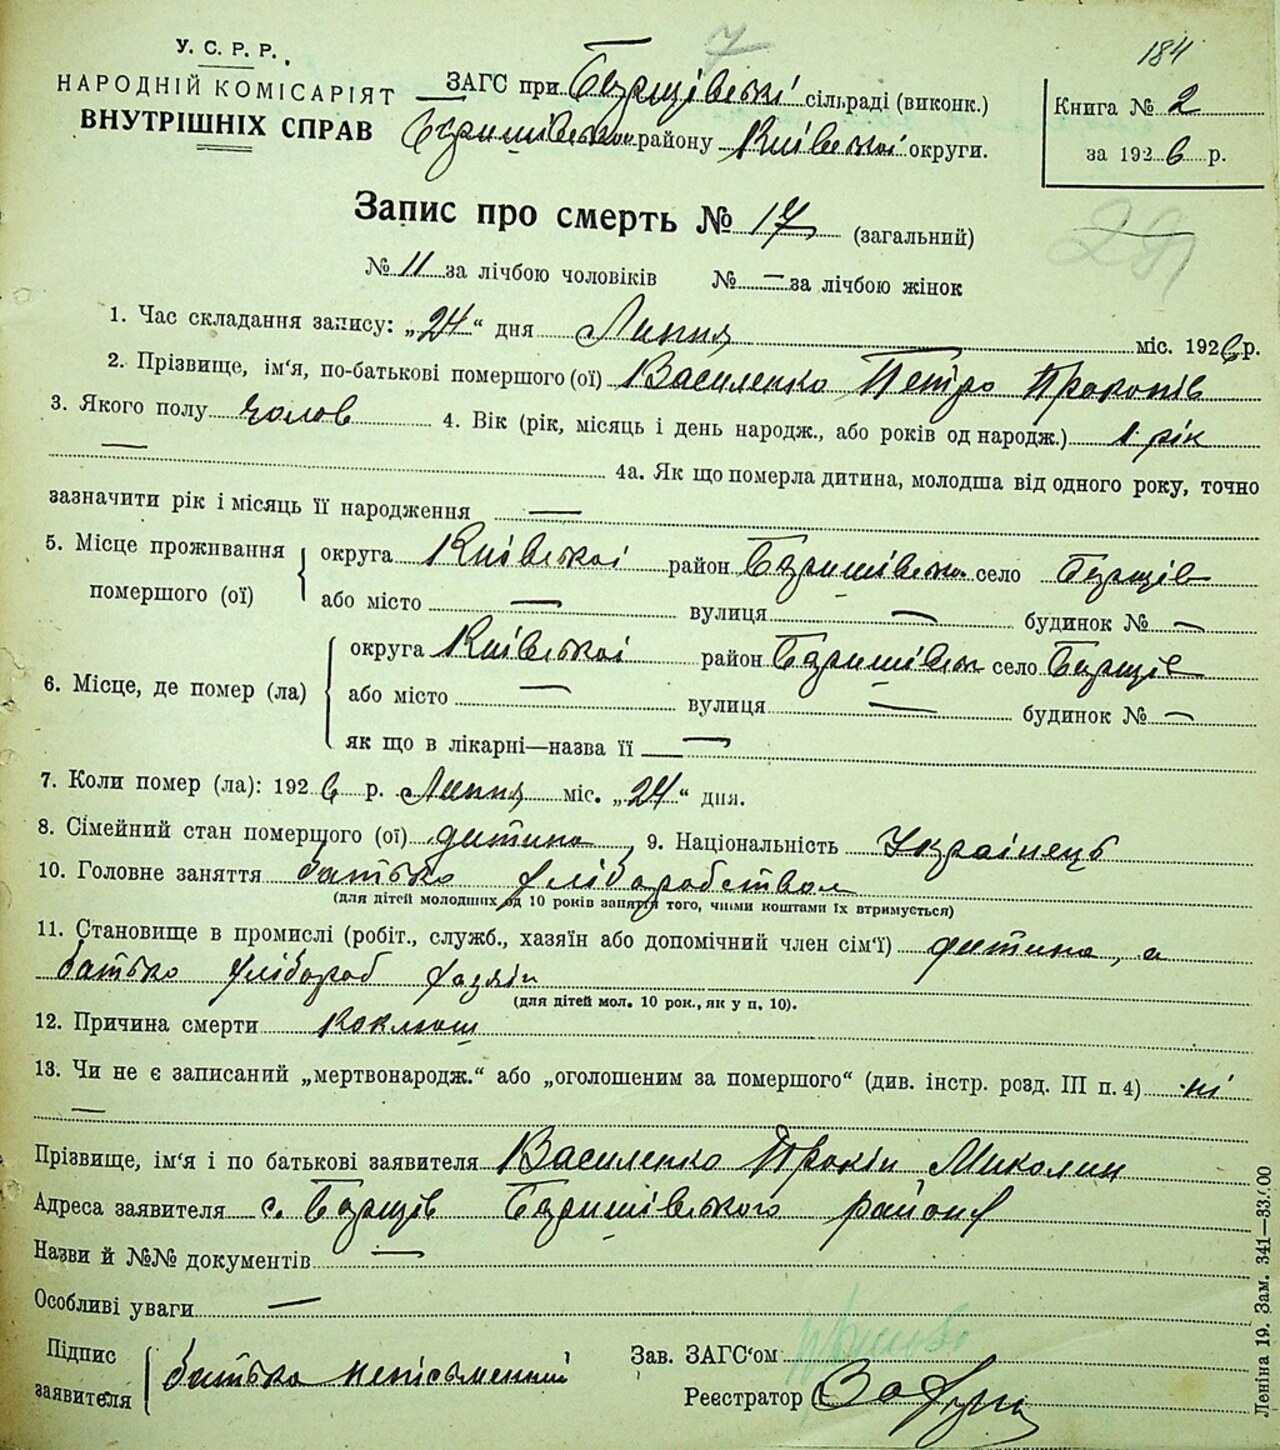 184
7
У. С. Р. Р.
НАРОДНІЙ КОМІСАРІЯТ
ВНУТРІШНІХ СПРАВ
ЗАГС при Борщівській сільраді (виконк.)
району Київської округи.
Книга № 2
за 1926 р.
Запис про смерть № 17 (загальний)
№ 11 за лічбою чоловіків № — за лічбою жінок
1. Час складання запису: „24“ дня Липня міс. 1926 р.
2. Прізвище, ім'я, по-батькові помершого (ої) Василенко Петро Прокопів
3. Якого полу чолов 4. Вік (рік, місяць і день народж., або років од народж.) 1 рік
— 4а. Як що померла дитина, молодша від одного року, точно
зазначити рік і місяць її народження —
5. Місце проживання помершого (ої) округа Київської район село Борщів
або місто — вулиця — будинок № —
6. Місце, де помер (ла) округа Київської район село Борщів
або місто — вулиця — будинок № —
як що в лікарні—назва її —
7. Коли помер (ла): 1926 р. Липня міс. „24“ дня.
8. Сімейний стан помершого (ої) дитина 9. Національність Українець
10. Головне заняття батько хліборобством
(для дітей молодших од 10 років заняття того, чиїми коштами їх втримується)
11. Становище в промислі (робіт., служб., хазяїн або допомічний член сім'ї) дитина, а
батько хлібороб хазяін
(для дітей мол. 10 рок., як у п. 10).
12. Причина смерти коклюш
13. Чи не є записаний „мертвонародж.“ або „оголошеним за помершого“ (див. інстр. розд. III п. 4) ні
—
Прізвище, ім'я і по батькові заявителя Василенко Прокіп Миколин
Адреса заявителя с. Борщів району
Назви й №№ документів —
Особливі уваги —
Підпис заявителя батько неписьменний
Зав. ЗАГС'ом
Реєстратор
Леніна 19. Зам. 341—33700